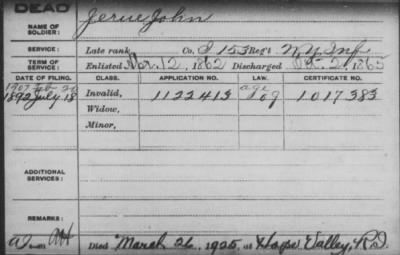 DEAD
NAME OF SOLDIER: Jerue John
SERVICE: Late rank Co. I 153 Reg't N.Y. Inf
TERM OF SERVICE: Enlisted 12, 1862 Discharged Oct. 2, 1865
DATE OF FILING. CLASS. APPLICATION NO. LAW. CERTIFICATE NO.
1907 Feb
1892 July 18 Invalid, 1122413 age 1017383
Widow,
Minor,
ADDITIONAL SERVICES:
REMARKS:
Died March 26, 1925, at Hope Valley, R.I.